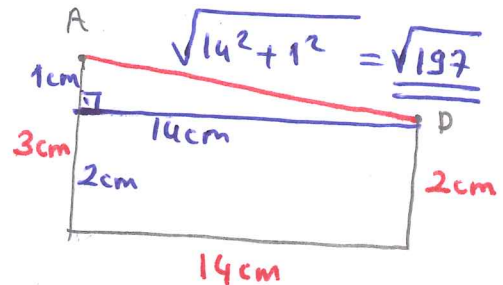 A
√14²+1² = √197
1cm
14cm
D
3cm
2cm
2cm
14cm